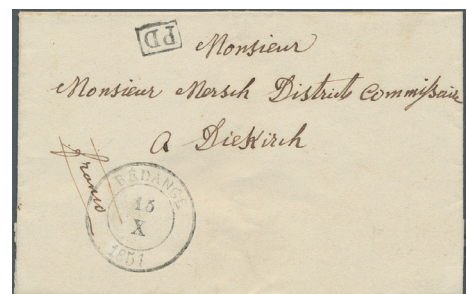 PD
Monsieur
Monsieur Mersch Districts Commissair
a Diekirch
franco
REDANGE
15
X
1851